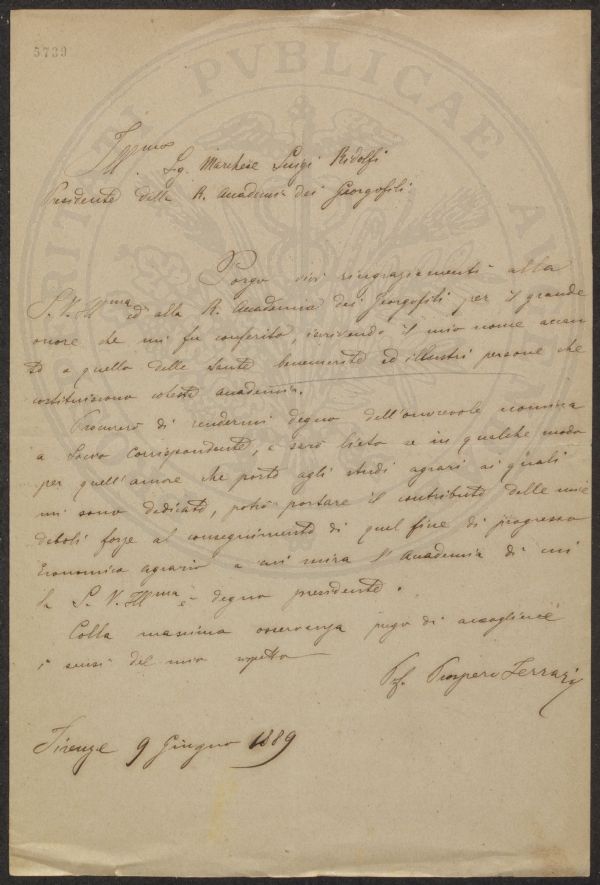 5739
Ill.mo Sg. Marchese Luigi Ridolfi
Presidente della R. Accademia dei Georgofili
Porgo vivi ringraziamenti alla
S. V. Ill.ma ed alla R. Accademia dei Georgofili per il grande
onore che mi fu conferito, iscrivendo il mio nome accan
to a quello delle tante benemerite ed illustri persone che
costituiscono cotesta accademia.
Procurerò di rendermi degno dell'onorevole nomina
a Socio Corrispondente, e sarò lieto se in qualche modo
per quell'amore che porto agli studi agrari ai quali
mi sono dedicato, potrò portare il contributo delle mie
deboli forze al conseguimento di quel fine di progresso
Economico agrario a cui mira l'Accademia di cui
la S. V. Ill.ma è degno presidente.
Colla massima osservanza prego di accogliere
i sensi del mio rispetto
Prof. Prospero Ferrari
Firenze 9 Giugno 1889
PVBLICAE